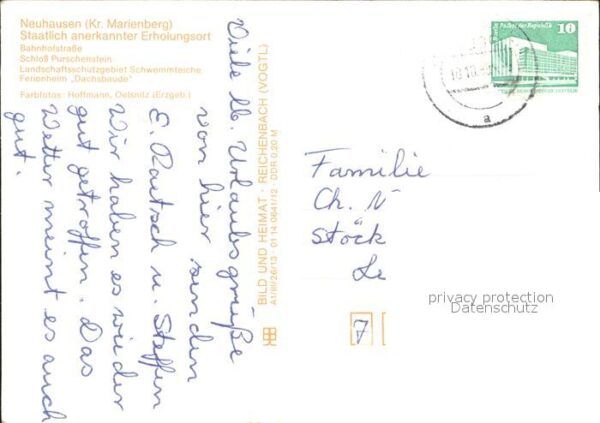 Neuhausen (Kr. Marienberg)
Staatlich anerkannter Erholungsort
Bahnhofstraße
Schloß Purschenstein
Landschaftsschutzgebiet Schwemmteiche
Ferienheim „Dachsbaude"
Farbfotos: Hoffmann, Oelsnitz (Erzgeb.)
Viele lb. Urlaubsgrüße
von hier senden
E. Raitsch u. Steffen
Wir haben es wieder
gut getroffen. Das
Wetter meint es auch
gut.
BILD UND HEIMAT · REICHENBACH (VOGTL)
A1/III/26/13 · 01 14 0641/12 · DDR 0,20 M
Palast der Republik
10
a
Familie
Ch. N
Stöck
Le
7
privacy protection
Datenschutz